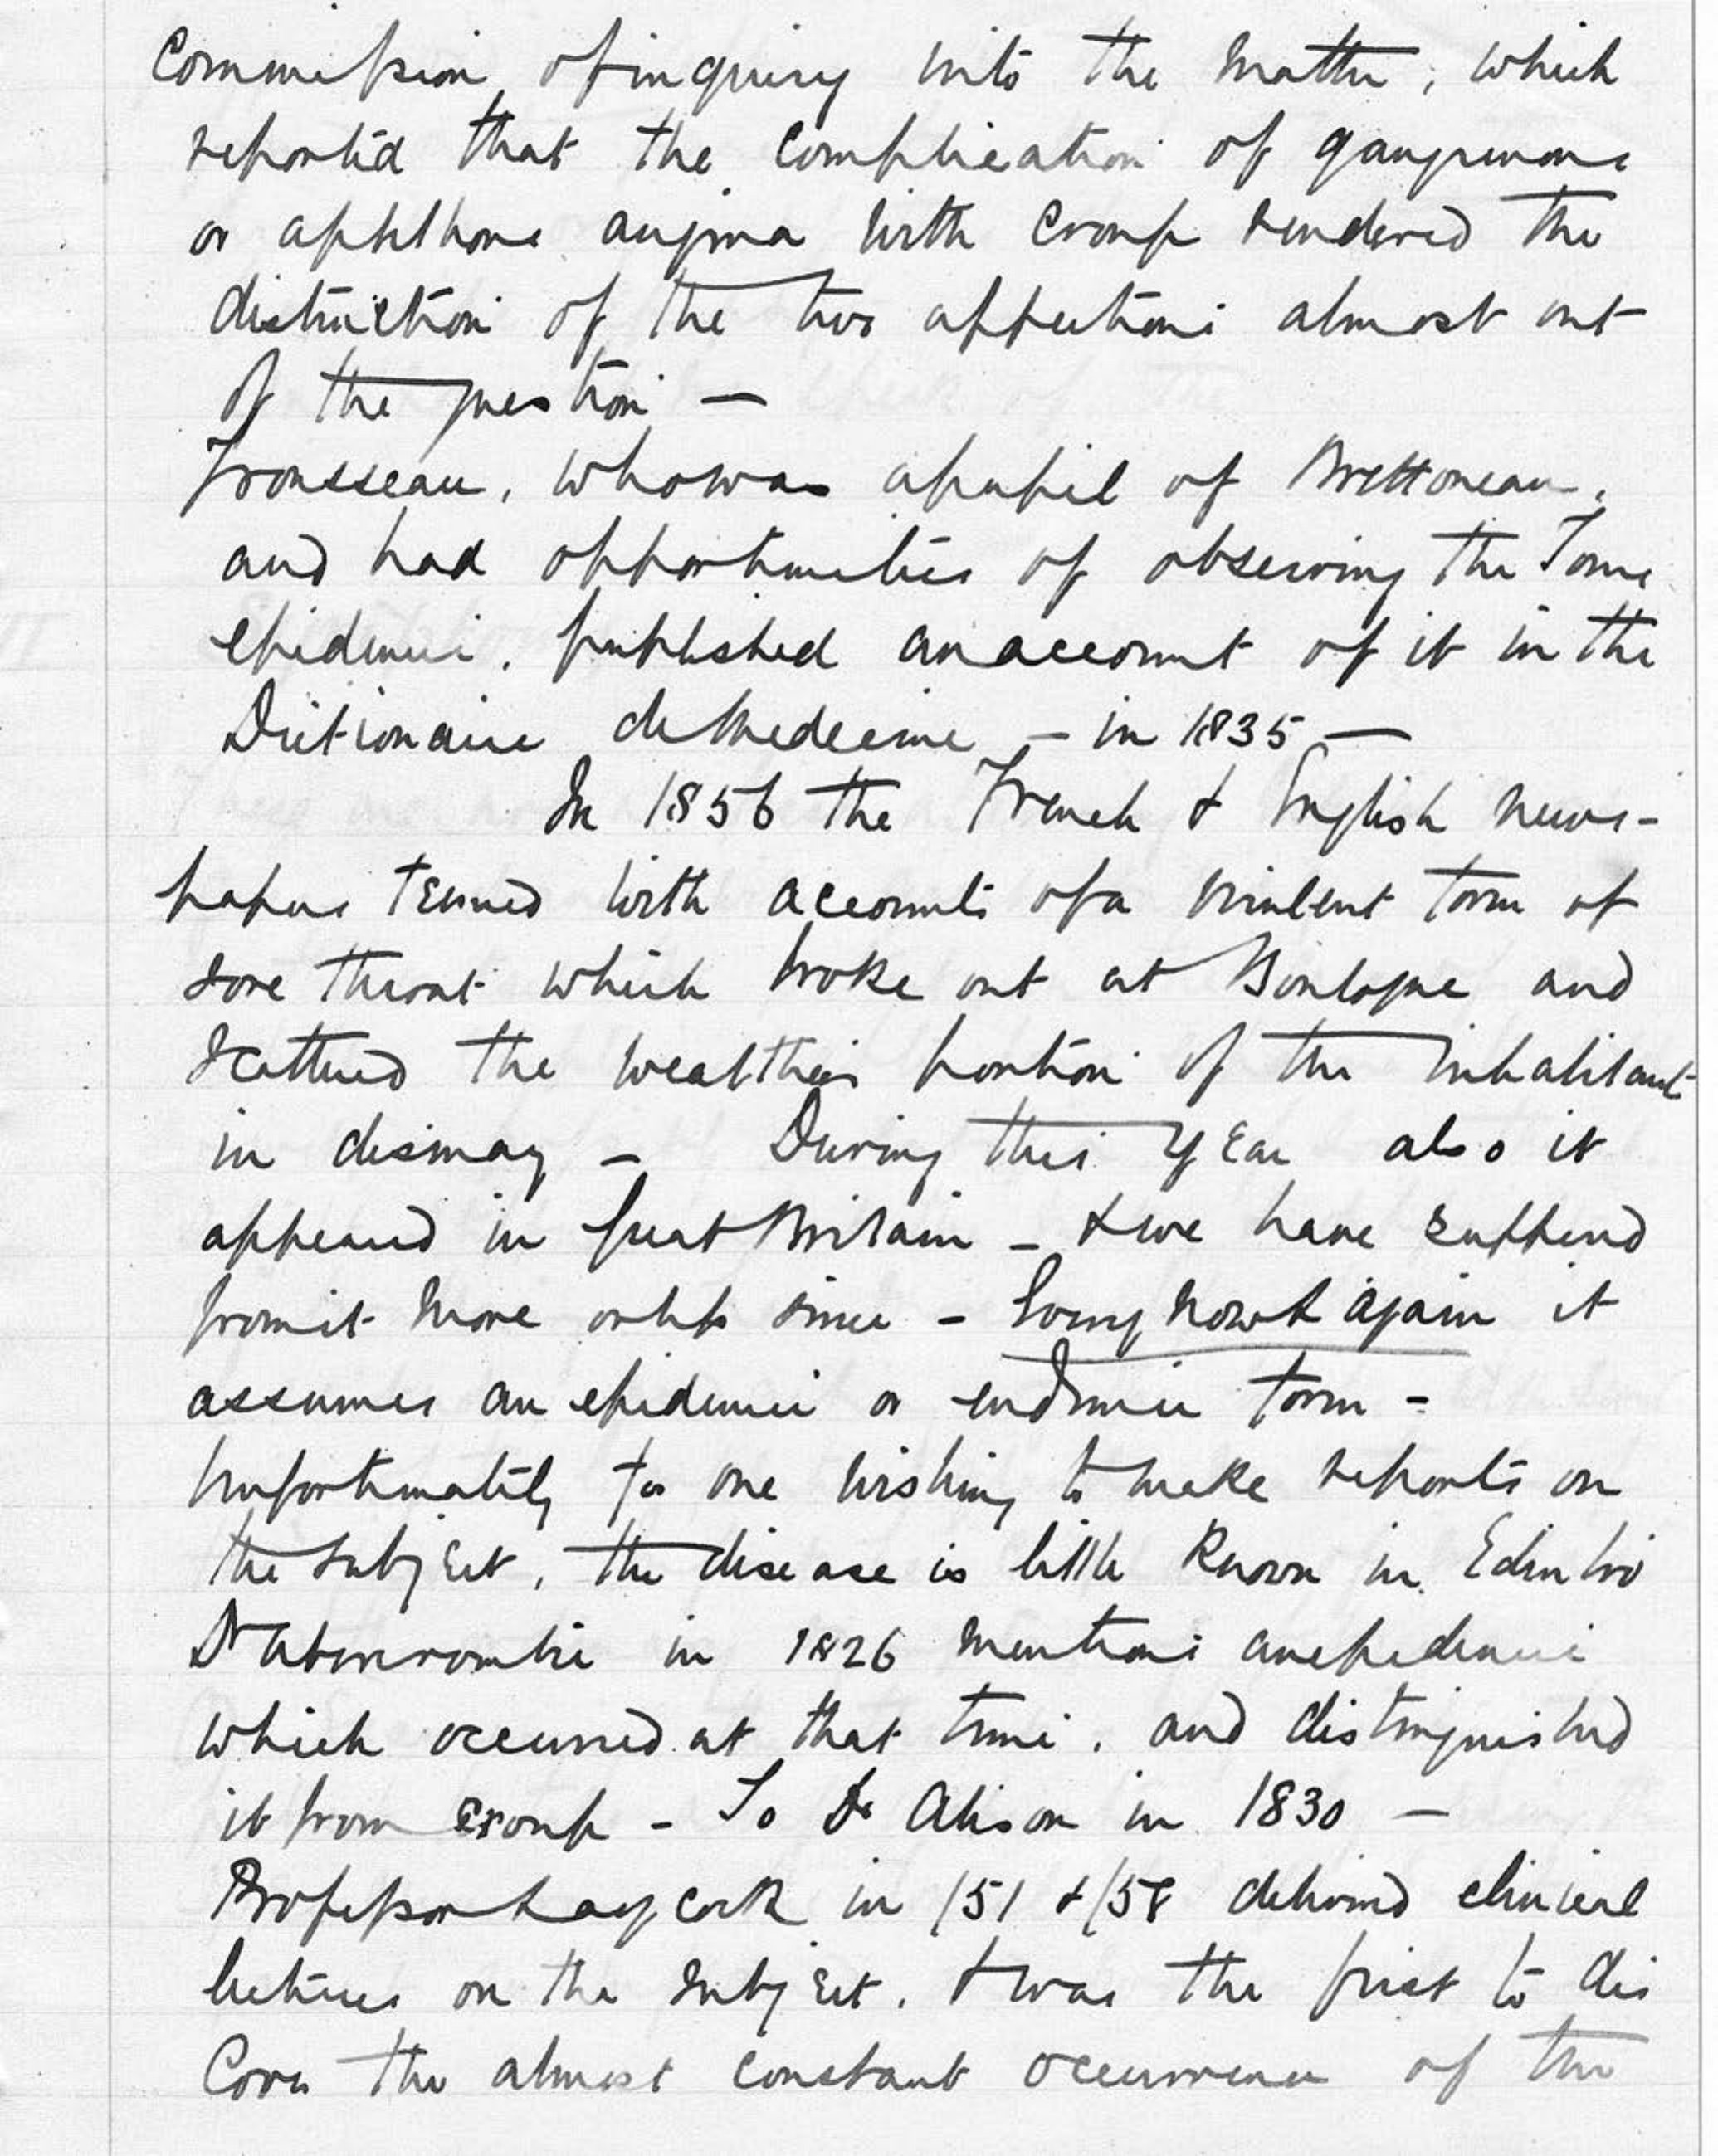 Commission of inquiry into the matter, which
reported that the complication of gangrenous
or aphthous angina with croup rendered the
distinction of the two affections almost out
of the question —
Trousseau, who was a pupil of Brettoneau,
and had opportunities of observing the Tours
epidemic, published an account of it in the
Dictionaire de Medecine — in 1835 —
In 1856 the French & English news-
papers teemed with accounts of a virulent form of
sore throat which broke out at Boulogne and
scattered the wealthier portion of the inhabitants
in dismay — During this year also it
appeared in Great Britain — & we have suffered
from it more or less since — now & again it
assumes an epidemic or endemic form —
Unfortunately for one wishing to make reports on
the subject, the disease is little known in Edinbro
Dr Abercrombie in 1826 mentions an epidemic
which occurred at that time, and distinguished
it from croup — So Dr Alison in 1830 —
Professor Laycock in /51 & /58 delivered clinical
lectures on the subject, & was the first to dis
cover the almost constant occurrence of the